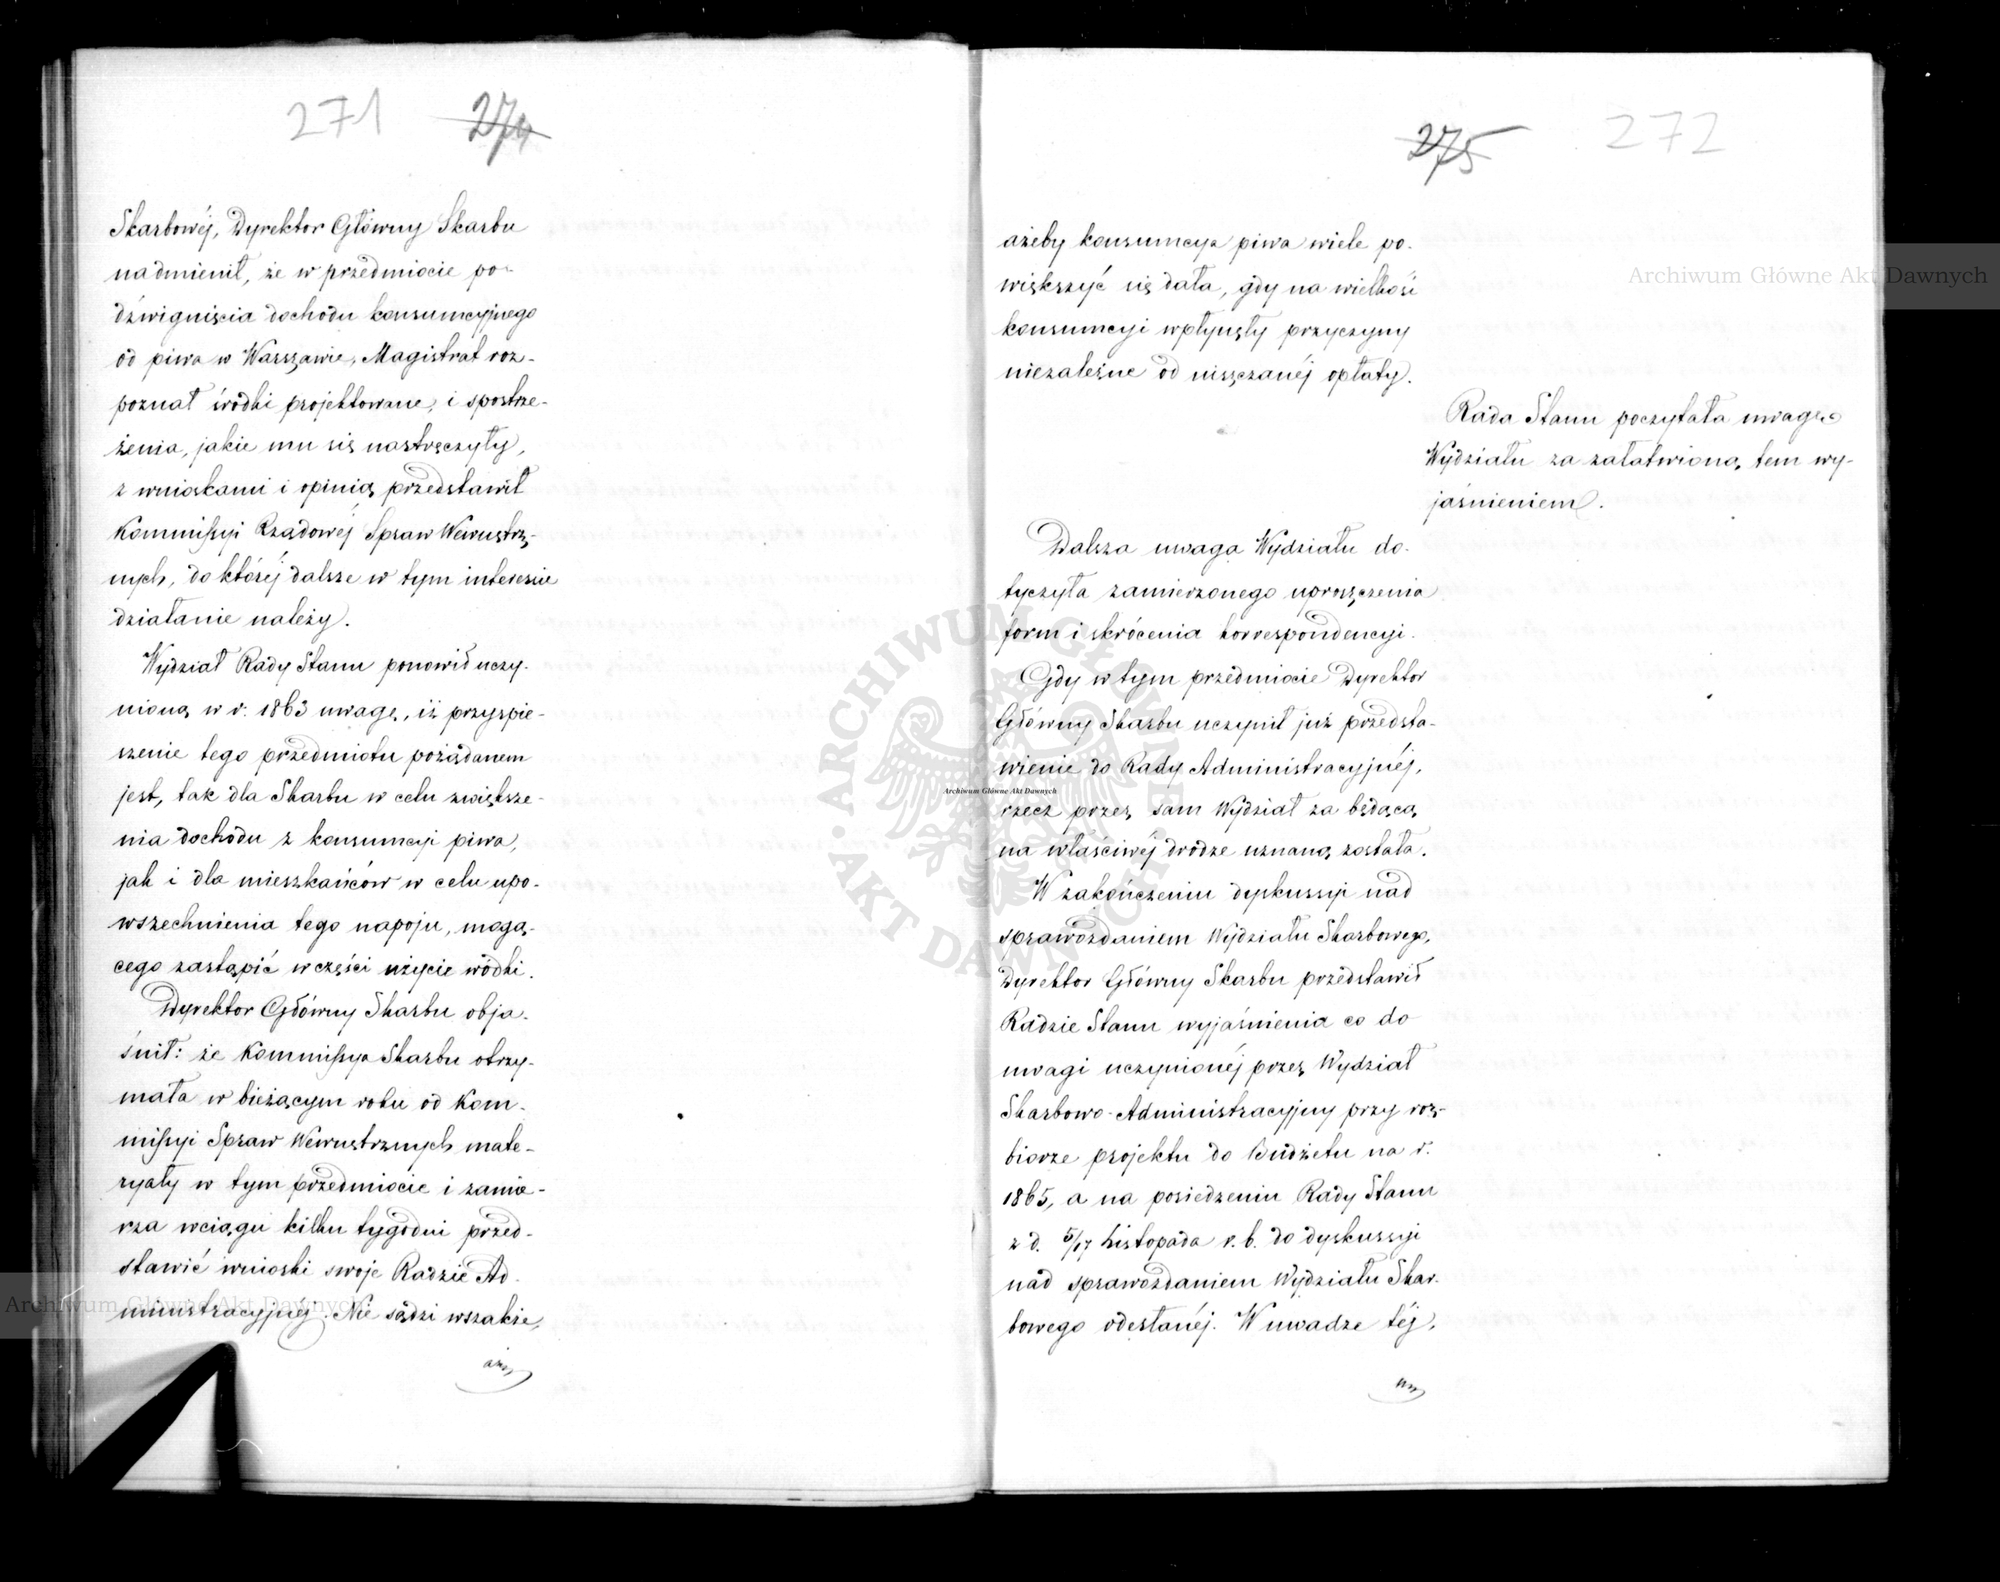 271 274
Skarbowéj, Dyrektor Główny Skarbu
nadmienił, że w przedmiocie po-
dźwignięcia dochodu konsumcyjnego
od piwa w Warszawie, Magistrat roz-
poznał środki projektowane, i spostrze-
żenia, jakie mu się nastręczyły,
z wnioskami i opinią przedstawił
Kommissyi Rządowéj Spraw Wewnętrz-
nych, do któréj dalsze w tym interesie
działanie należy.
Wydział Rady Stanu ponowił uczy-
nioną w r. 1863 uwagę, iż przyspie-
szenie tego przedmiotu pożądanem
jest, tak dla Skarbu w celu zwiększe-
nia dochodu z konsumcyi piwa,
jak i dla mieszkańców w celu upo-
wszechnienia tego napoju, mogą-
cego zastąpić w części użycie wódki.
Dyrektor Główny Skarbu obja-
śnił: że Kommissya Skarbu otrzy-
mała w bieżącym roku od Kom-
missyi Spraw Wewnętrznych mate-
ryały w tym przedmiocie i zamie-
rza wciągu kilku tygodni przed-
stawić wnioski swoje Radzie Ad-
ministracyjnéj. Nie sądzi wszakże,
aże
275 272
ażeby konsumcya piwa wiele po-
większyć się dała, gdy na wielkość
konsumcyi wpłynęły przyczyny
niezależne od uiszczanéj opłaty.
Rada Stanu poczytała uwagę
Wydziału za załatwioną tem wy-
jaśnieniem.
Dalsza uwaga Wydziału do-
tyczyła zamierzonego uproszczenia
form i skrócenia korrespondencyi.
Gdy w tym przedmiocie Dyrektor
Główny Skarbu uczynił już przedsta-
wienie do Rady Administracyjnéj,
rzecz przez sam Wydział za będącą
na właściwéj drodze uznaną została.
W zakończeniu dyskussyi nad
sprawozdaniem Wydziału Skarbowego,
Dyrektor Główny Skarbu przedstawił
Radzie Stanu wyjaśnienia co do
uwagi uczynionéj przez Wydział
Skarbowo-Administracyjny przy roz-
biorze projektu do Budżetu na r.
1865, a na posiedzeniu Rady Stanu
z d. 5/17 Listopada r. b. do dyskussyi
nad sprawozdaniem Wydziału Skar-
bowego odesłanéj. W uwadze téj,
Archiwum Główne Akt Dawnych
Archiwum Główne Akt Dawnych
Archiwum Główne Akt Dawnych
ARCHIWUM GŁÓWNE AKT DAWNYCH